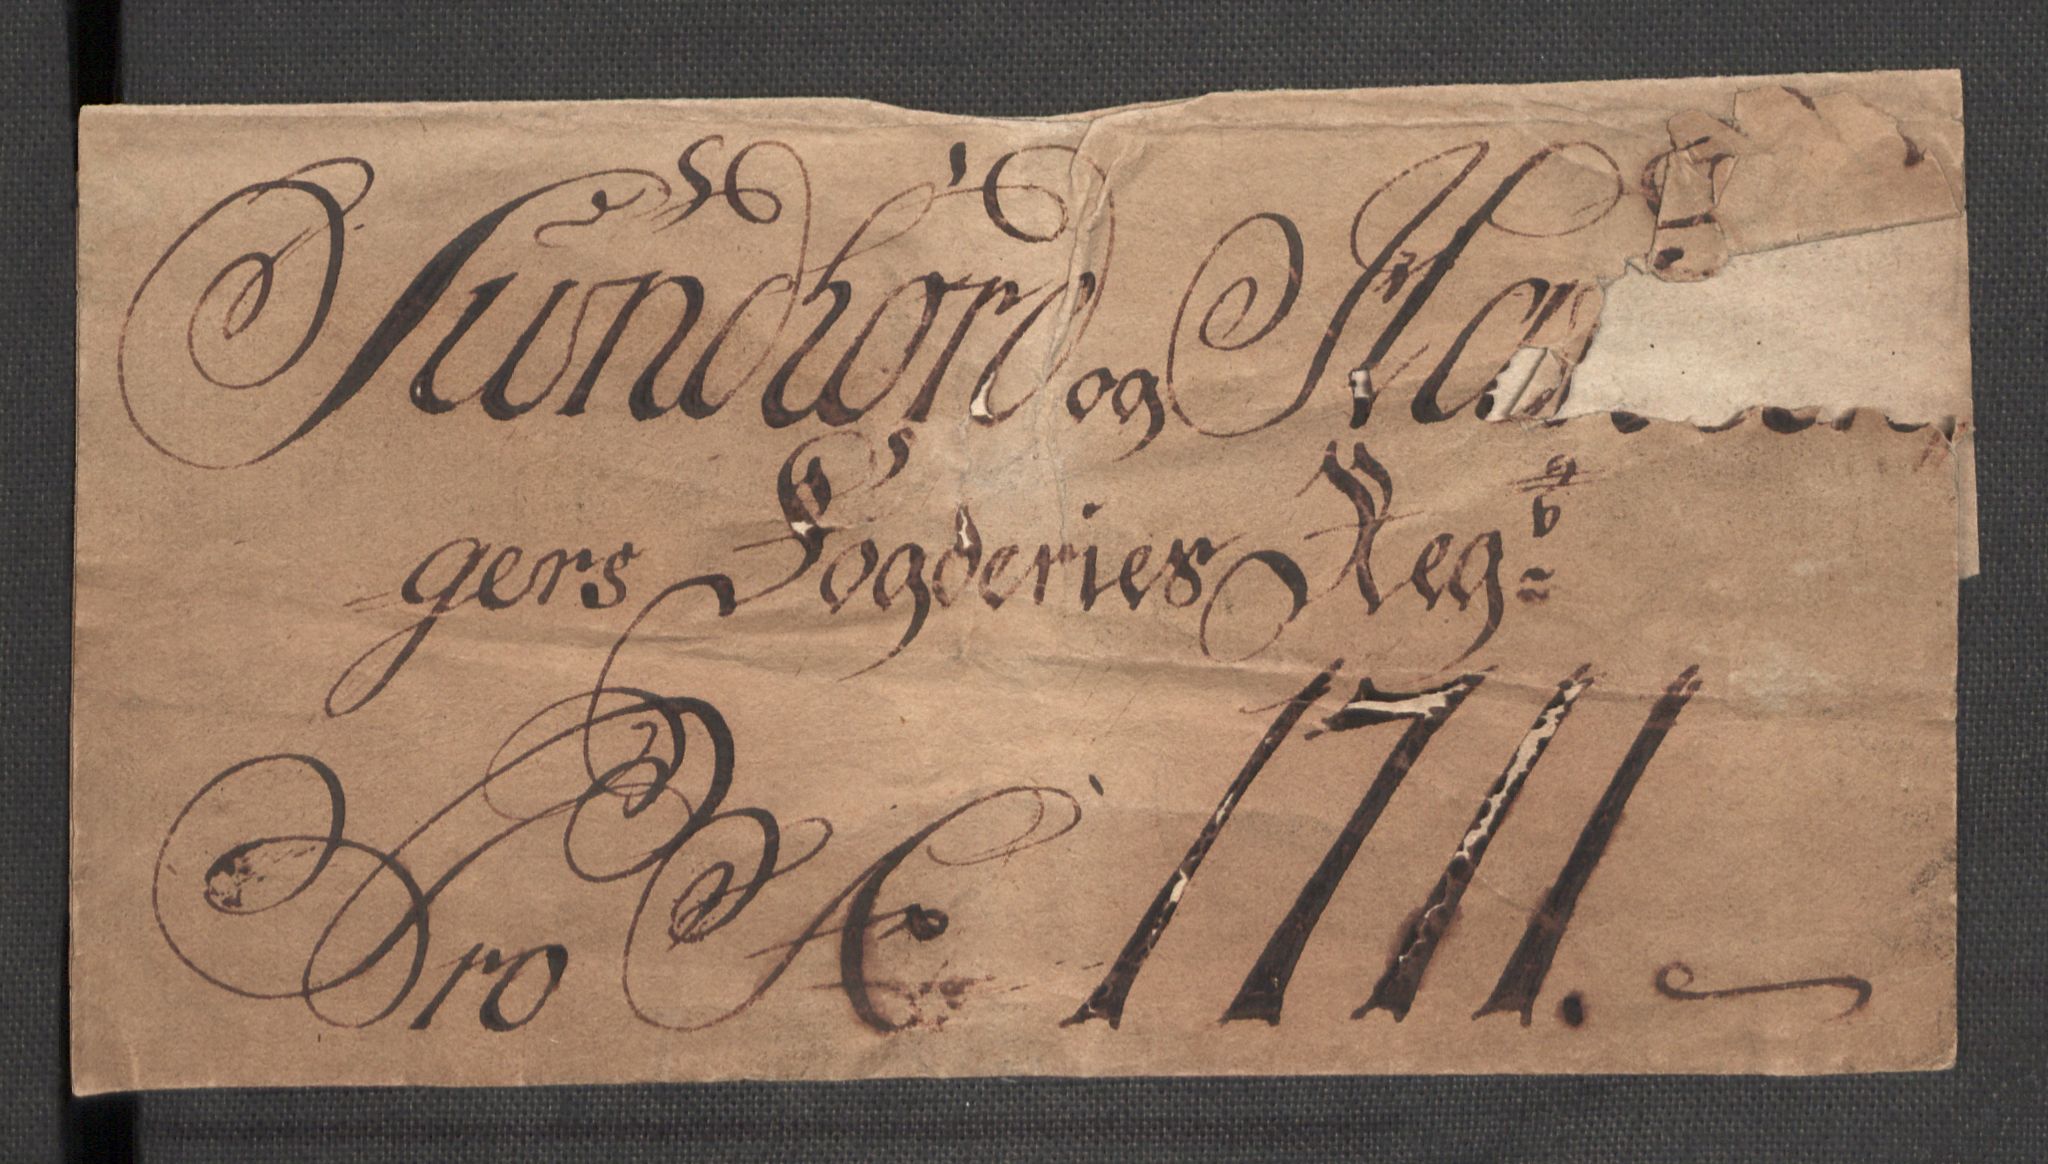 Sundhord og
gers Fogderies Regb
Pro Ao 1711.